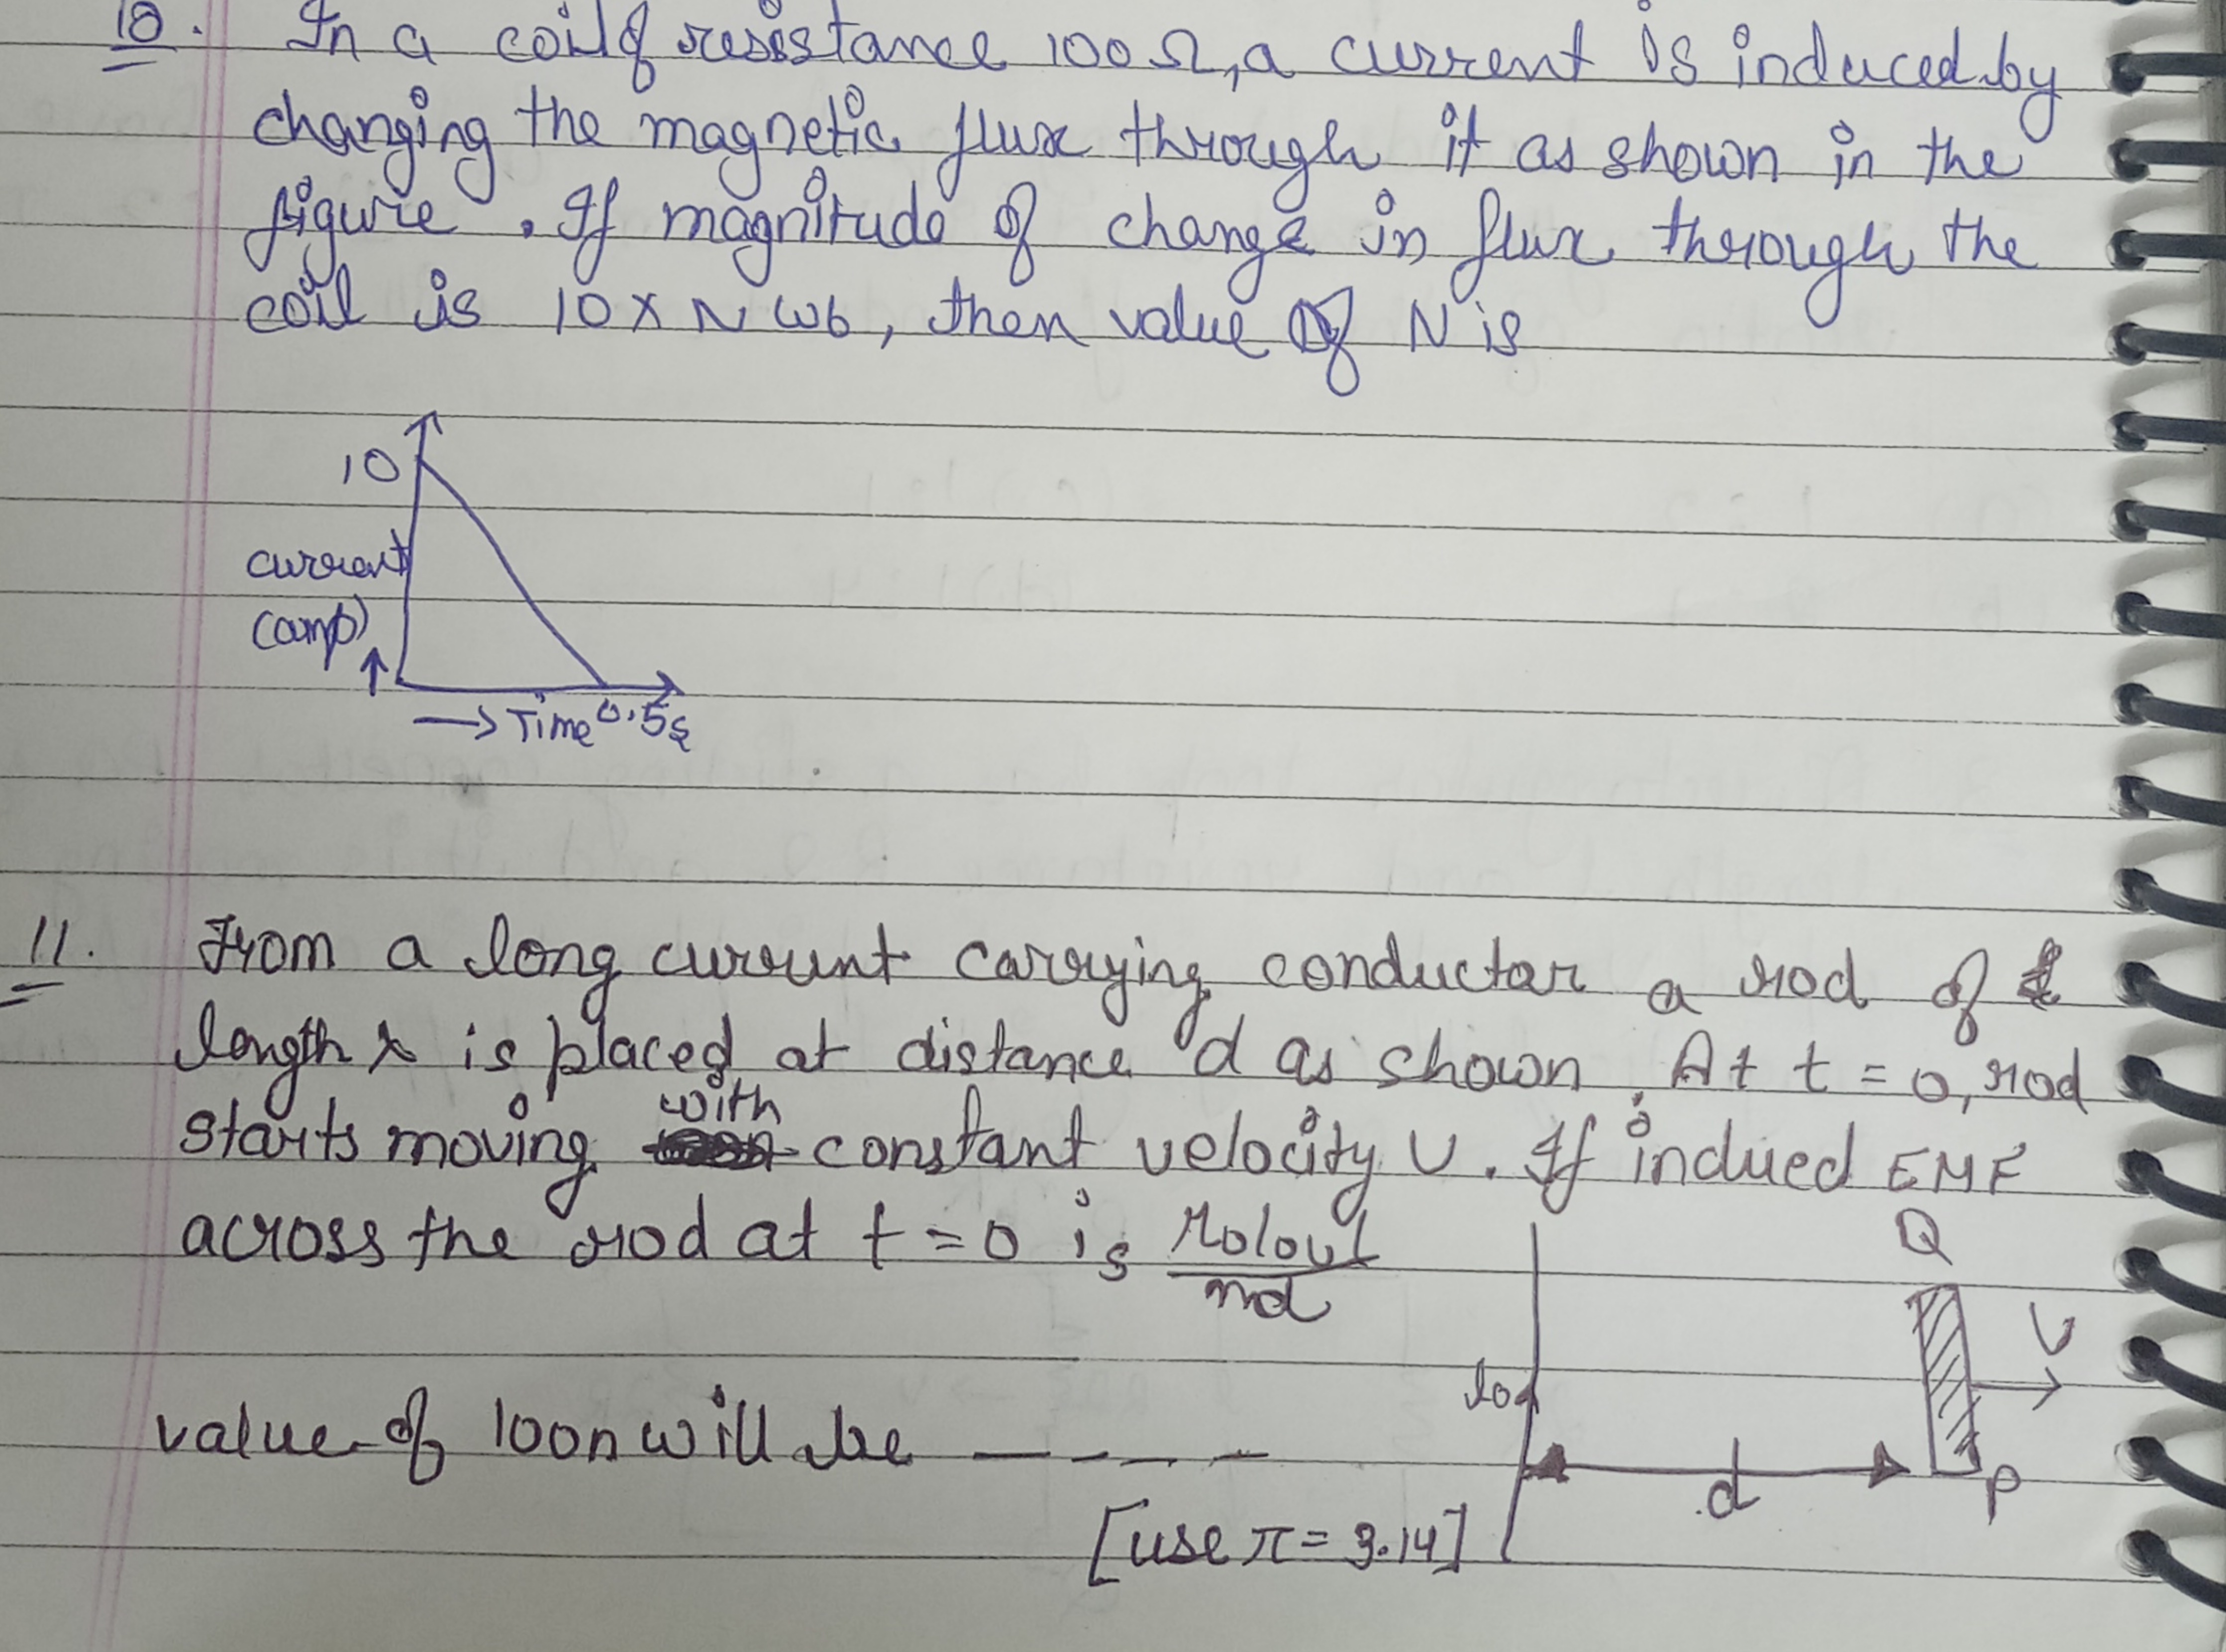 10. In a coil of resistance 100Ω, a current is induced by
changing the magnetic flux through it as shown in the
figure. If magnitude of change in flux through the
coil is 10 x N Wb, then value of N is
10
current
(amp)
↑
→ Time 0.5s
11. From a long current carrying conductor a rod of
length is placed at distance d as shown. At t = 0, rod
with
starts moving constant velocity v. If indued EMF
across the rod at t = 0 is μ₀I₀vl
nd
Q
v
value of 100n will be - - - -
I₀
d
P
[use π = 3.14]